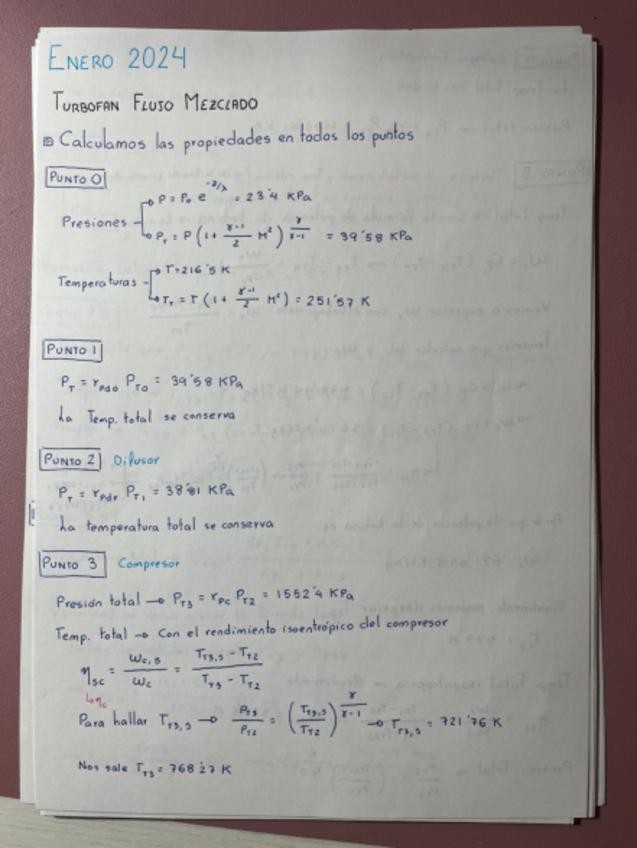 ENERO 2024
TURBOFAN FLUJO MEZCLADO
Calculamos las propiedades en todos los puntos
PUNTO 0
Presiones
P = P₀ e^(-z/λ) = 23'4 KPa
P_T = P (1 + (γ-1)/2 M²)^(γ/(γ-1)) = 39'58 KPa
Temperaturas
T = 216'5 K
T_T = T (1 + (γ-1)/2 M²) = 251'57 K
PUNTO 1
P_T = r_pdo P_T0 = 39'58 KPa
La Temp. total se conserva
PUNTO 2 Difusor
P_T = r_pdf P_T1 = 38'81 KPa
La temperatura total se conserva
PUNTO 3 Compresor
Presión total → P_T3 = r_pc P_T2 = 1552'4 KPa
Temp. total → Con el rendimiento isoentrópico del compresor
η_sc = ω_c,s / ω_c = (T_T3,s - T_T2) / (T_T3 - T_T2)
↳ η_c
Para hallar T_T3,s → P_T3 / P_T2 = (T_T3,s / T_T2)^(γ/(γ-1)) → T_T3,s = 721'76 K
Nos sale T_T3 = 768'27 K